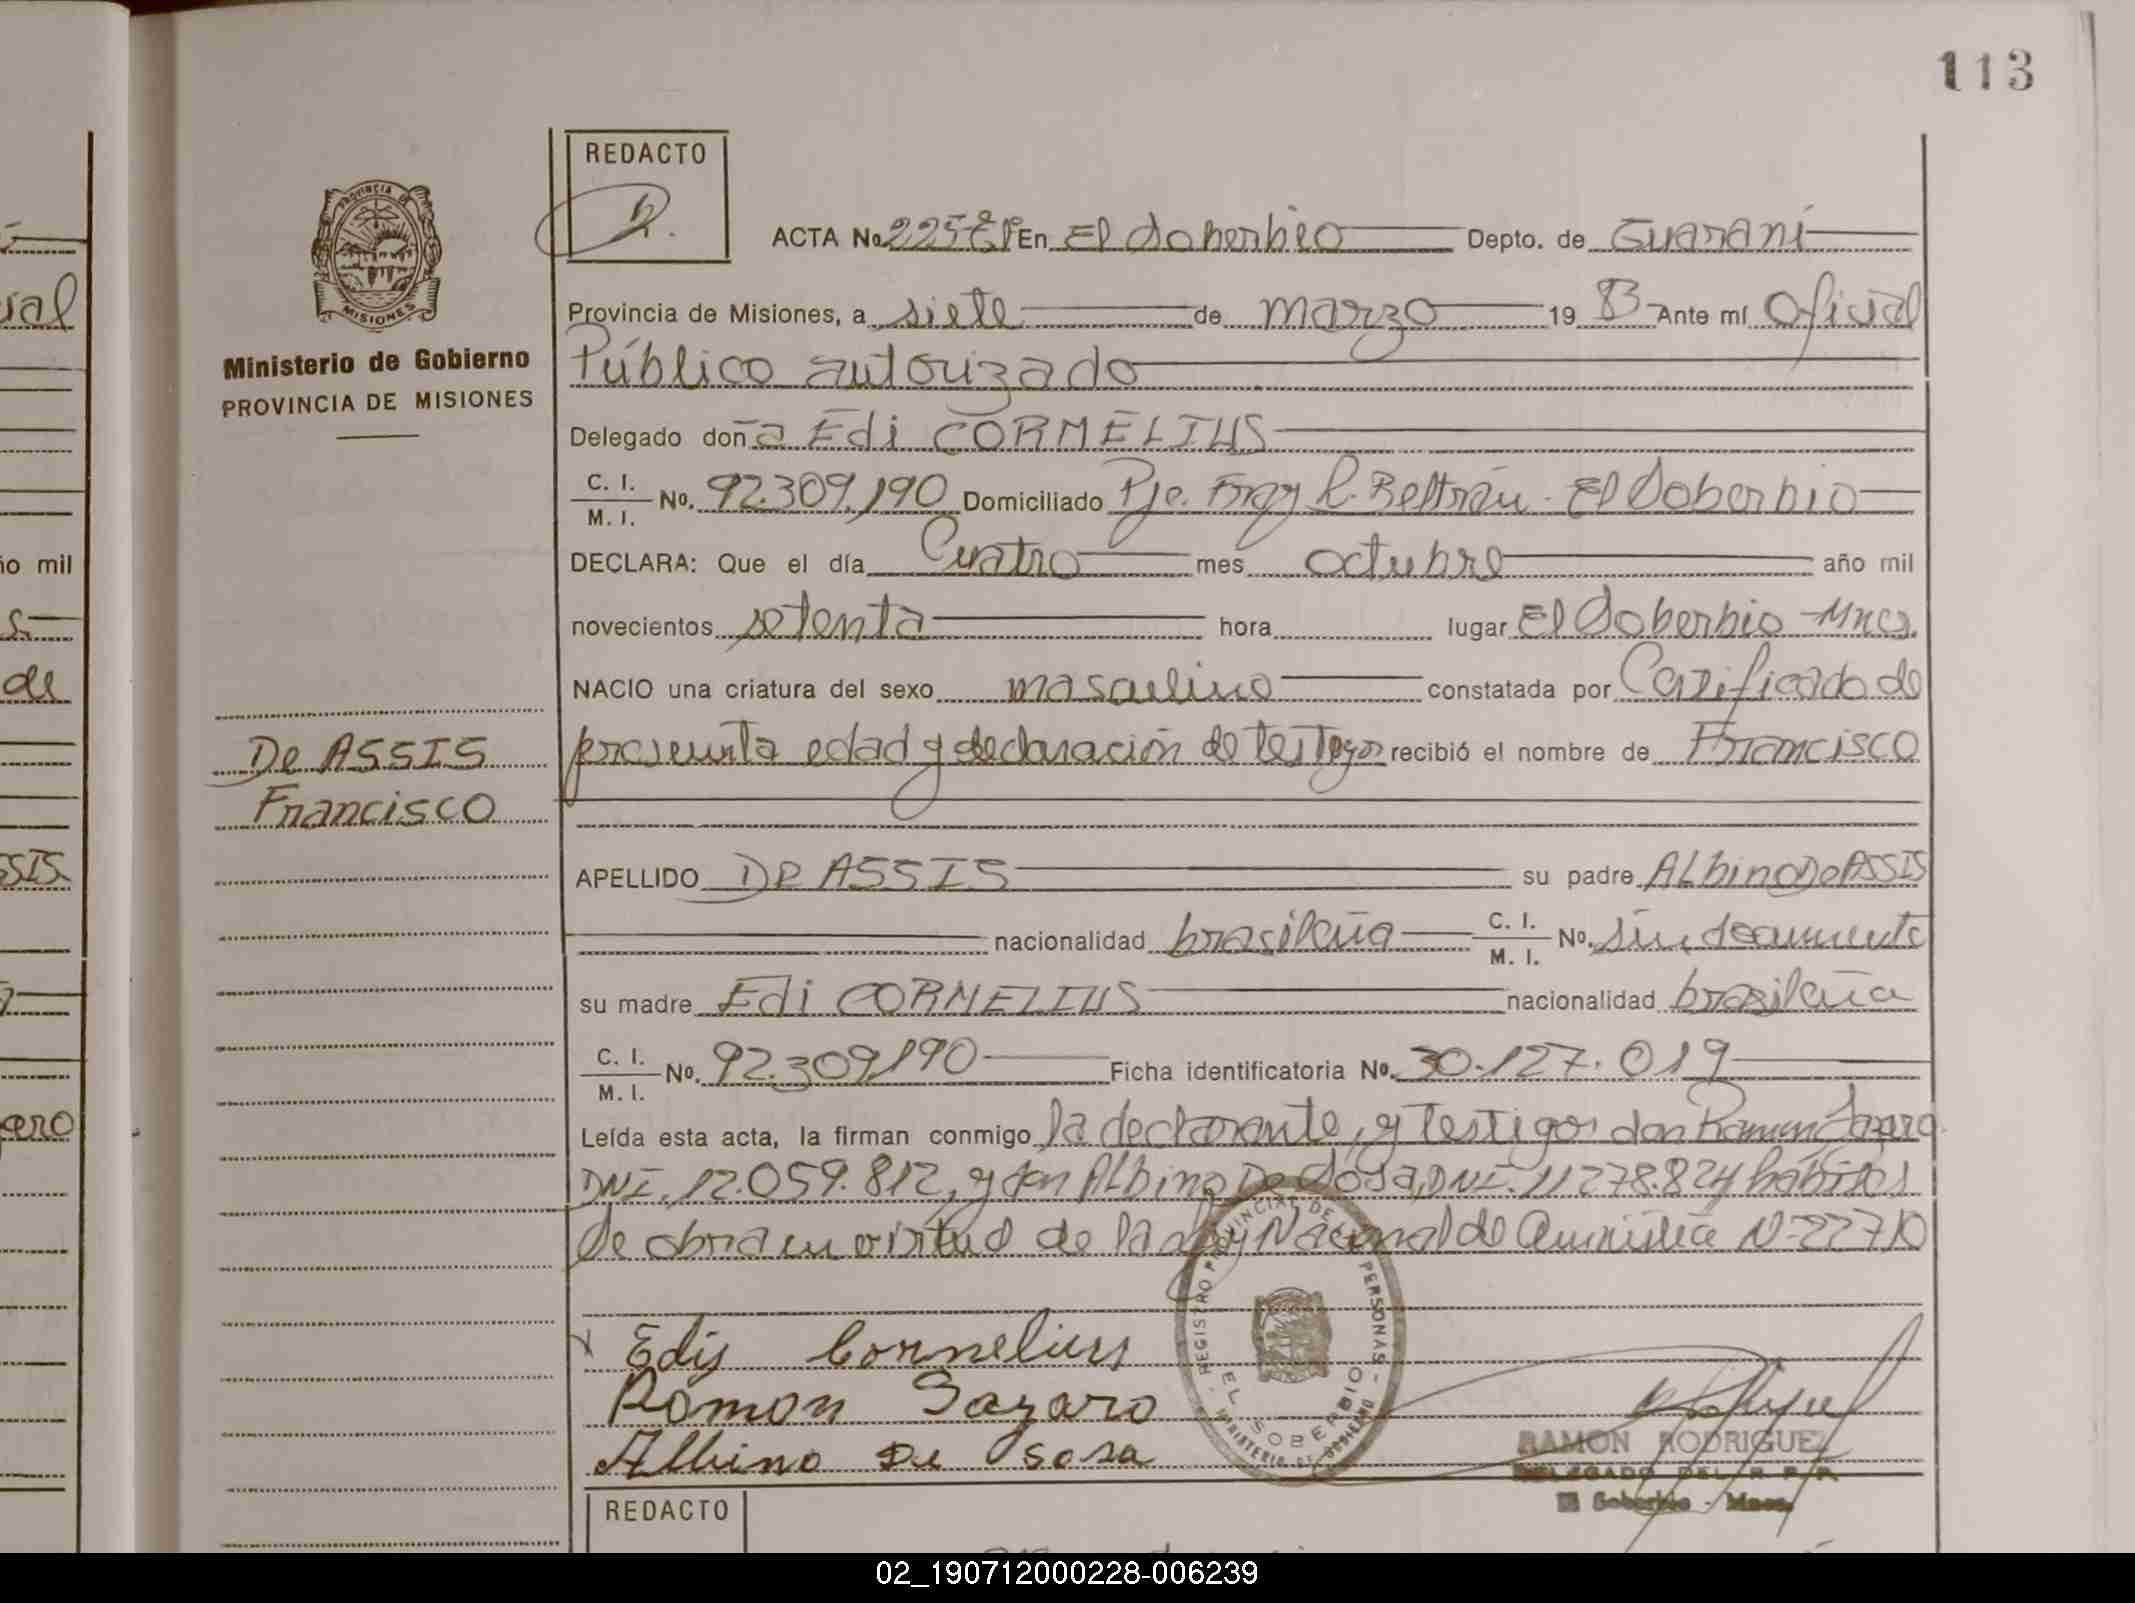 113
REDACTO
ACTA No 225 En El Soberbio Depto. de Guaraní
Provincia de Misiones, a siete de marzo 19 83 Ante mí Oficial
Público autorizado
Ministerio de Gobierno
PROVINCIA DE MISIONES
Delegado doña Edi CORNELIUS
C. I. M. I. No. 92.309.190 Domiciliado Pje. Fray L. Beltrán - El Soberbio
DECLARA: Que el día Cuatro mes octubre año mil
novecientos setenta hora lugar El Soberbio - Mnes.
NACIO una criatura del sexo masculino constatada por Certificado de
presunta edad y declaración de testigos recibió el nombre de Francisco
De ASSIS
Francisco
APELLIDO De ASSIS su padre Albino De ASSIS
nacionalidad brasileña C. I. M. I. No. sin documento
su madre Edi CORNELIUS nacionalidad brasileña
C. I. M. I. No. 92.309.190 Ficha identificatoria No. 30.127.019
Leída esta acta, la firman conmigo la declarante, y testigos don Ramón Lazaro
DNI. 12.059.812, y don Albino De Sosa, DNI. 11.278.824 hábiles
se obra en virtud de la ley Nacional de Amnistía N-
Edis Cornelius
Ramon Lazaro
Albino De Sosa
REGISTRO PROVINCIAL DE PERSONAS
EL SOBERBIO
MINISTERIO DE GOBIERNO
RAMON RODRIGUEZ
DELEGADO DEL R.P.P.
El Soberbio - Mnes.
REDACTO
02_190712000228-006239